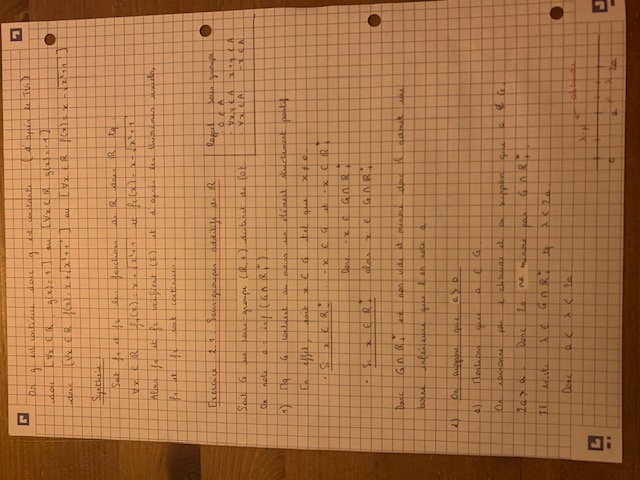 Or g est continue donc g est constante (d'après le TVI)
donc [∀x ∈ ℝ, g(x) = 1] ou [∀x ∈ ℝ g(x) = -1]
donc [∀x ∈ ℝ f(x) = x + √(x²+1)] ou [∀x ∈ ℝ f(x) = x - √(x²+1)]
Synthèse :
Soit f₁ et f₂ les fonctions de ℝ dans ℝ tq
∀x ∈ ℝ f₁(x) = x + √(x²+1) et f₂(x) = x - √(x²+1)
Alors f₁ et f₂ vérifient (E) et d'après les théorèmes usuels,
f₁ et f₂ sont continues.
Exercice 2.1 : Sous-groupes additifs de ℝ
Rappel : Sous groupe
· 0 ∈ A
· ∀x,y ∈ A x+y ∈ A
· ∀x ∈ A -x ∈ A
Soit G un sous-groupe (ℝ,+) distinct de {0}.
On note a = inf (G ∩ ℝ₊*)
1) Mq G contient au moins un élément strictement positif.
En effet, soit x ∈ G tel que x ≠ 0.
· Si x ∈ ℝ₋* -x ∈ G et -x ∈ ℝ₊*
Donc -x ∈ G ∩ ℝ₊*
· Si x ∈ ℝ₊* alors x ∈ G ∩ ℝ₊*
Donc G ∩ ℝ₊* est non vide et minoré donc il admet une
borne inférieure que l'on note a.
2) On suppose que a > 0
a) Montrons que a ∈ G.
On raisonne par l'absurde et on suppose que a ∉ G.
2a > a. Donc 2a ne minore pas G ∩ ℝ₊*.
Il existe λ ∈ G ∩ ℝ₊* tq λ < 2a.
Donc a < λ < 2a.
λ-μ absurde
0 a μ λ 2a